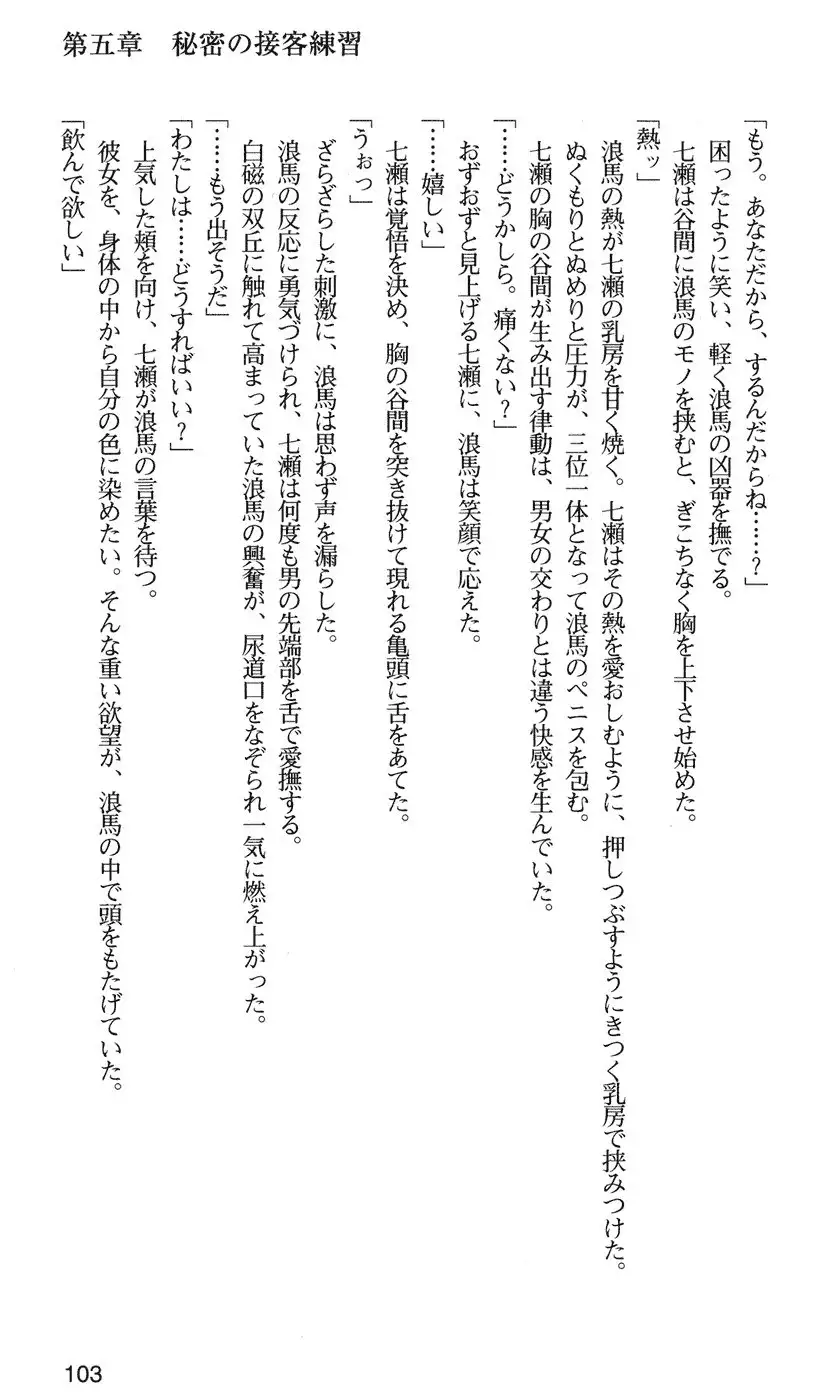 第五章　秘密の接客練習
「もう。あなただから、するんだからね……？」
困ったように笑い、軽く浪馬の凶器を撫でる。
七瀬は谷間に浪馬のモノを挟むと、ぎこちなく胸を上下させ始めた。
「熱ッ」
浪馬の熱が七瀬の乳房を甘く焼く。七瀬はその熱を愛おしむように、押しつぶすようにきつく乳房で挟みつけた。
ぬくもりとぬめりと圧力が、三位一体となって浪馬のペニスを包む。
七瀬の胸の谷間が生み出す律動は、男女の交わりとは違う快感を生んでいた。
「……どうかしら。痛くない？」
おずおずと見上げる七瀬に、浪馬は笑顔で応えた。
「……嬉しい」
七瀬は覚悟を決め、胸の谷間を突き抜けて現れる亀頭に舌をあてた。
「うぉっ」
ざらざらした刺激に、浪馬は思わず声を漏らした。
浪馬の反応に勇気づけられ、七瀬は何度も男の先端部を舌で愛撫する。
白磁の双丘に触れて高まっていた浪馬の興奮が、尿道口をなぞられ一気に燃え上がった。
「……もう出そうだ」
「わたしは……どうすればいい？」
上気した頬を向け、七瀬が浪馬の言葉を待つ。
彼女を、身体の中から自分の色に染めたい。そんな重い欲望が、浪馬の中で頭をもたげていた。
「飲んで欲しい」
103